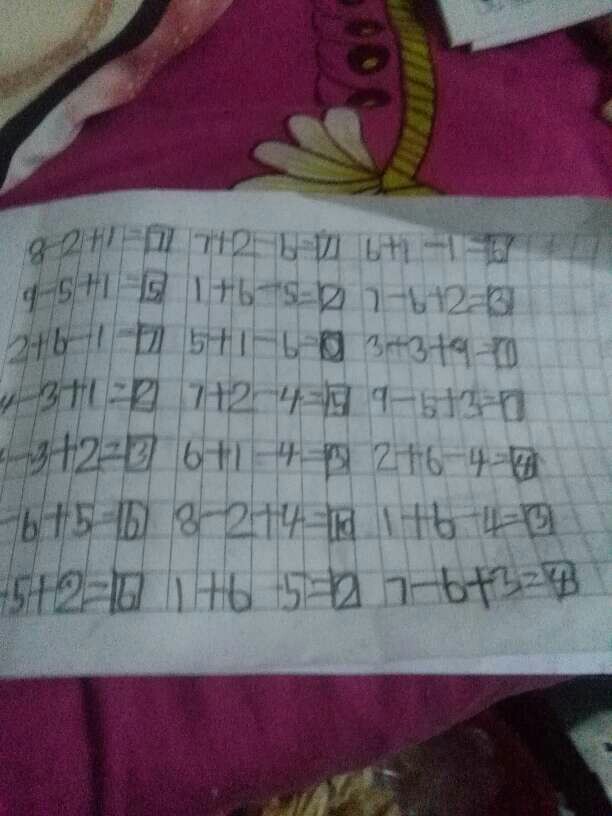 8-2+1=7 7+2-6=7 6+1-1=6
9-5+1=5 1+6-5=2 7-6+2=3
2+6-1=7 5+1-6=0 3+3+9=
4-3+1=2 7+2-4=5 9-5+3=
-3+2=3 6+1-4=3 2+6-4=4
-6+5=6 8-2+4=10 1+6-4=3
-5+2=6 1+6-5=2 7-6+3=4